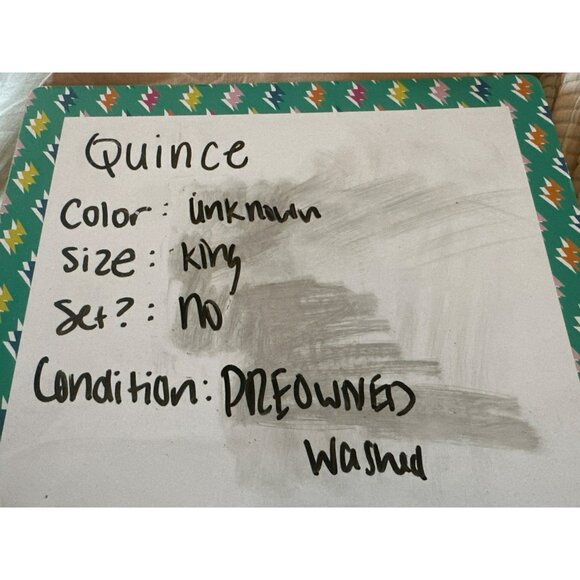 Quince
Color: Unknown
Size: King
Set?: no
Condition: PREOWNED
Washed